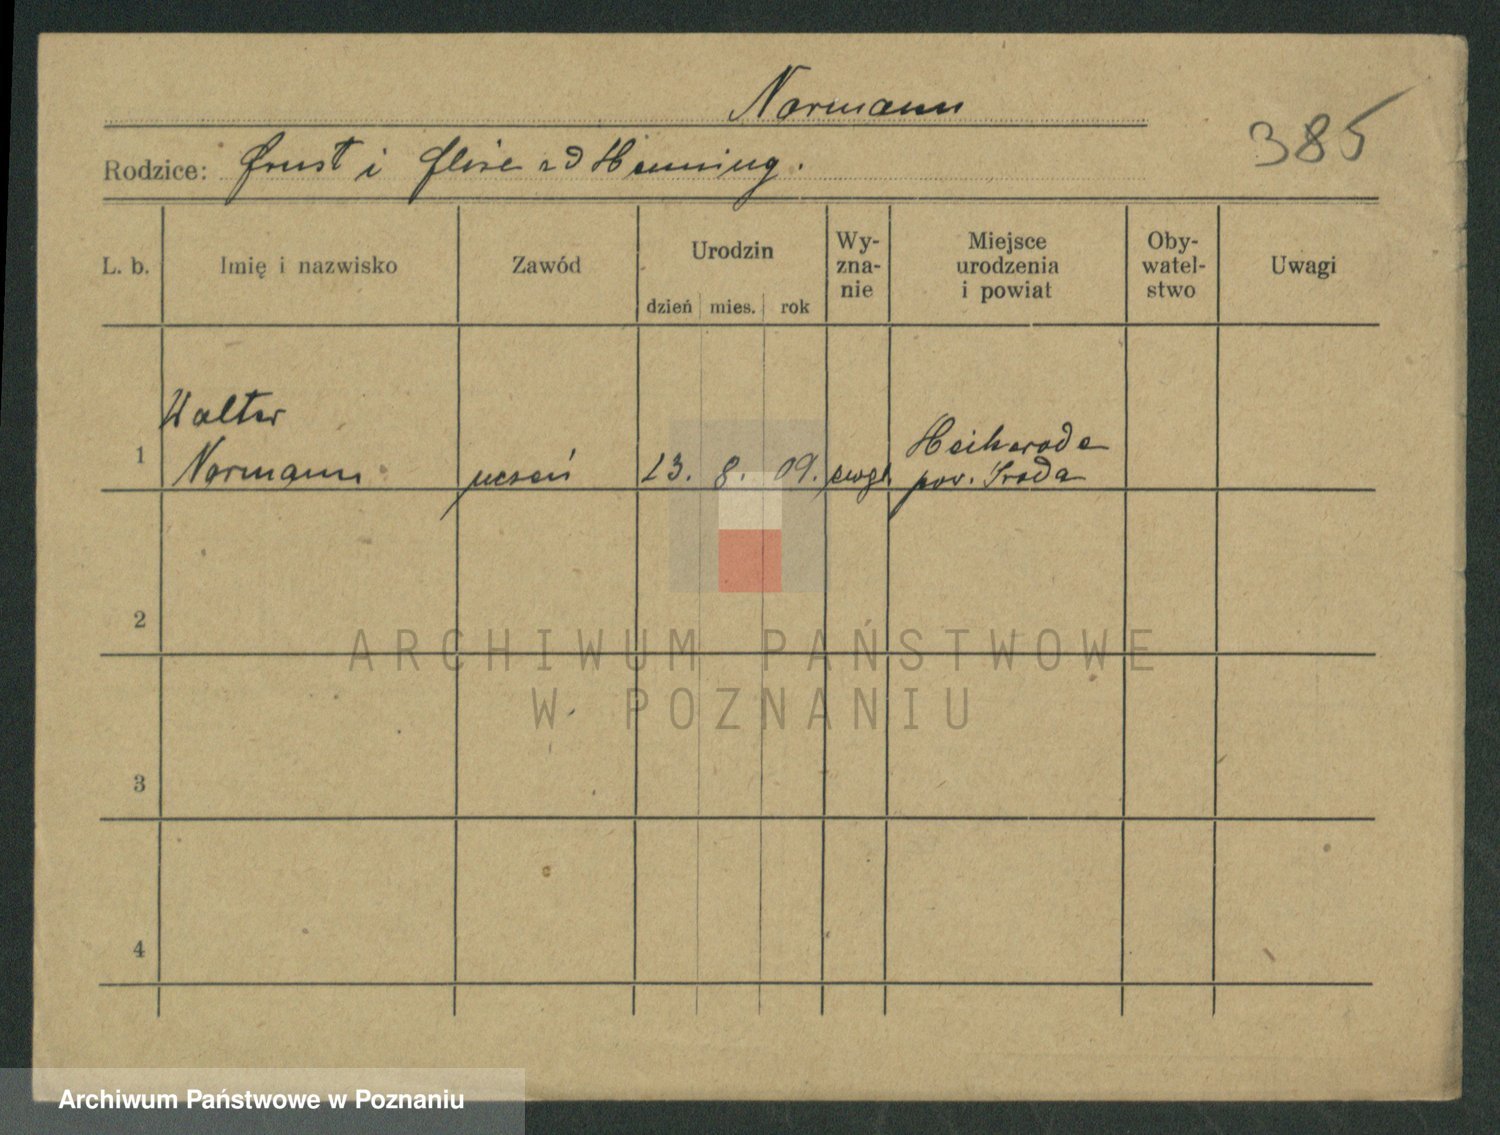 Normann
385
Rodzice: Ernst i Elise zd Henning.
L. b.
Imię i nazwisko
Zawód
Urodzin
dzień mies. rok
Wy-
zna-
nie
Miejsce
urodzenia
i powiat
Oby-
watel-
stwo
Uwagi
Walter
1 Normann uczeń 23. 8. 09. ewgl.
pow. Środa
2
ARCHIWUM PAŃSTWOWE
W POZNANIU
3
4
Archiwum Państwowe w Poznaniu